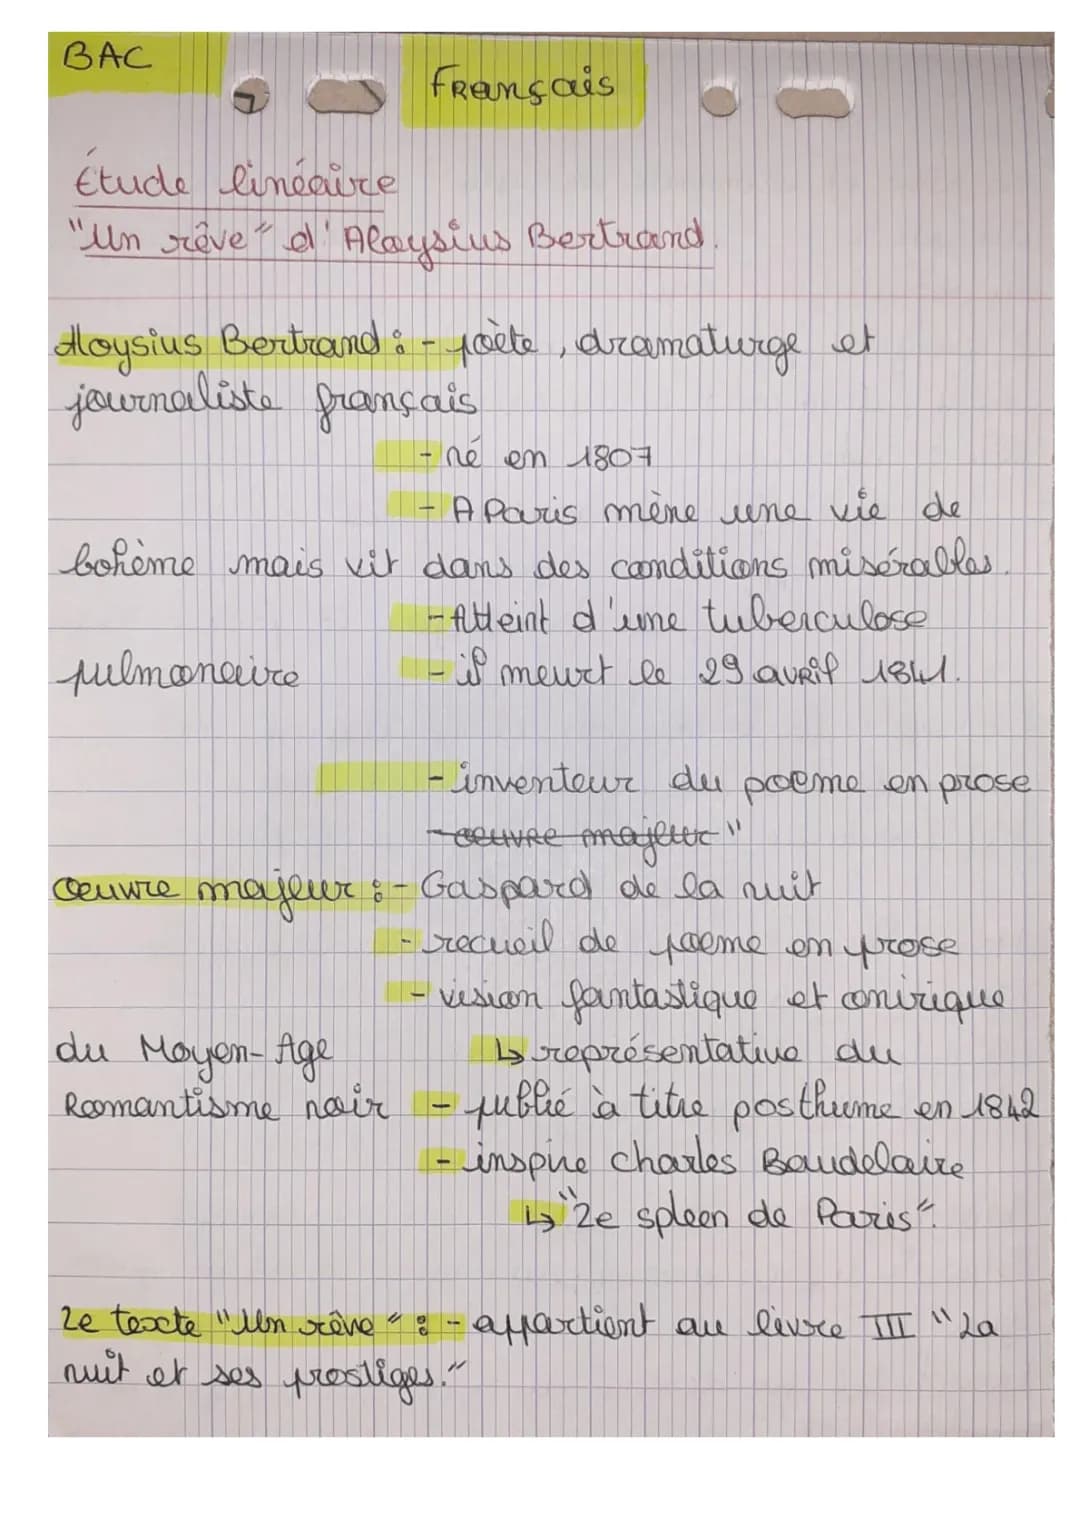 BAC
Français
Étude linéaire
"Un rêve" d'Aloysius Bertrand.
Aloysius Bertrand : - poète, dramaturge et
journaliste français
- né en 1807
- A Paris mène une vie de
bohème mais vit dans des conditions misérables.
- Atteint d'une tuberculose
pulmonaire - il meurt le 29 avril 1841.
- inventeur du poeme en prose
- oeuvre majeur "
Œuvre majeur : - Gaspard de la nuit
- recueil de poeme en prose
- vision fantastique et onirique
du Moyen-Age ↳ représentative du
Romantisme noir - publié à titre posthume en 1842
- inspire Charles Baudelaire
↳ "Le spleen de Paris".
Le texte "Un rêve" : - appartient au livre III "La
nuit et ses prestiges."